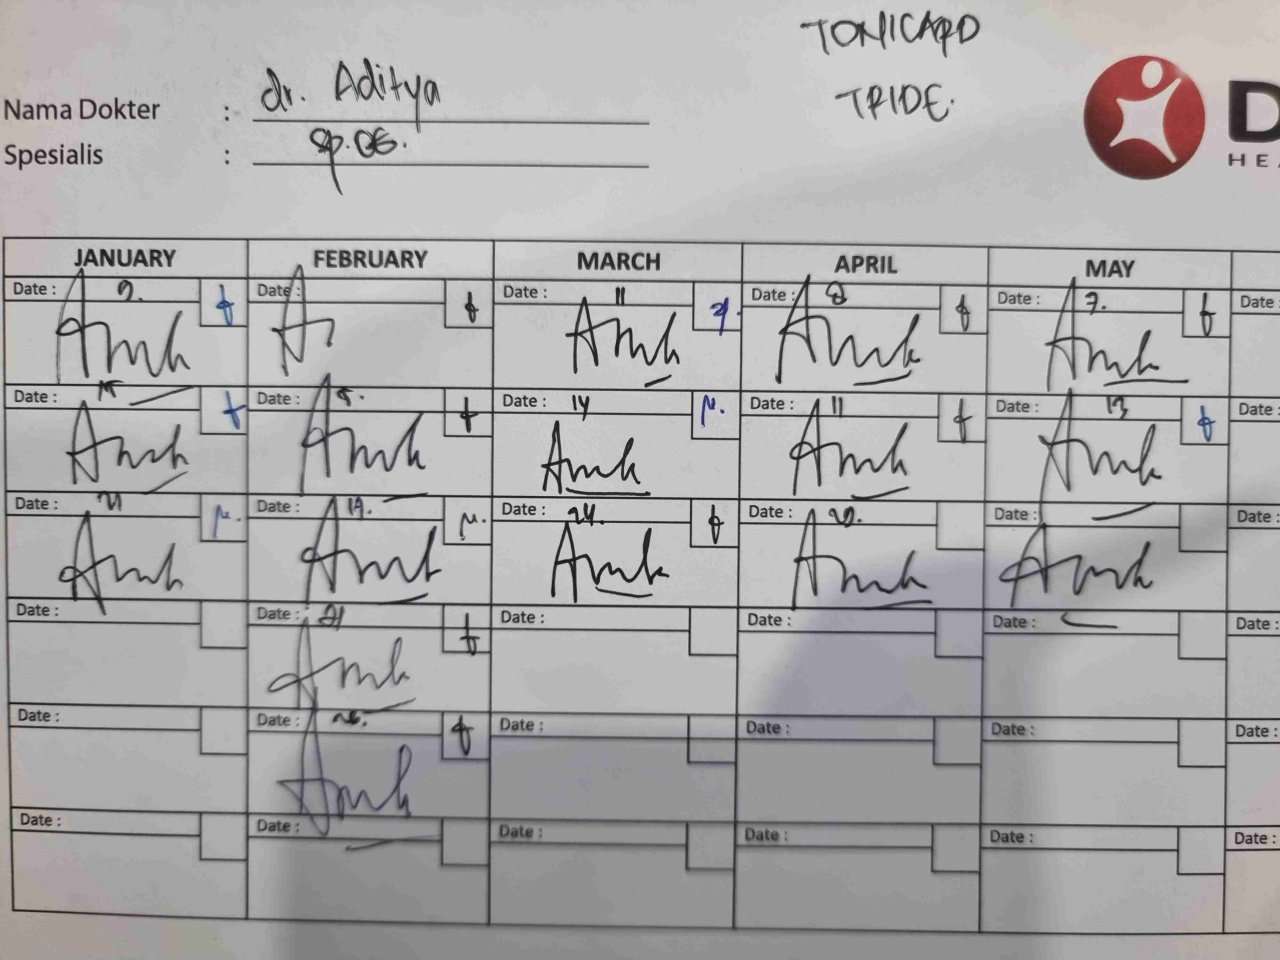 TONICARD
TRIDE.
Nama Dokter : dr. Aditya
Spesialis : Sp.OG.
D
HEA
JANUARY FEBRUARY MARCH APRIL MAY
Date : 9. Date : Date : 11 Date : 8 Date : 7. Date :
Date : 15 Date : Date : 14 Date : 11 Date : 13 Date :
Date : 21 Date : 19. Date : 24. Date : 20. Date : Date :
Date : Date : 21 Date : Date : Date : Date :
Date : Date : 26. Date : Date : Date : Date :
Date : Date : Date : Date : Date : Date :